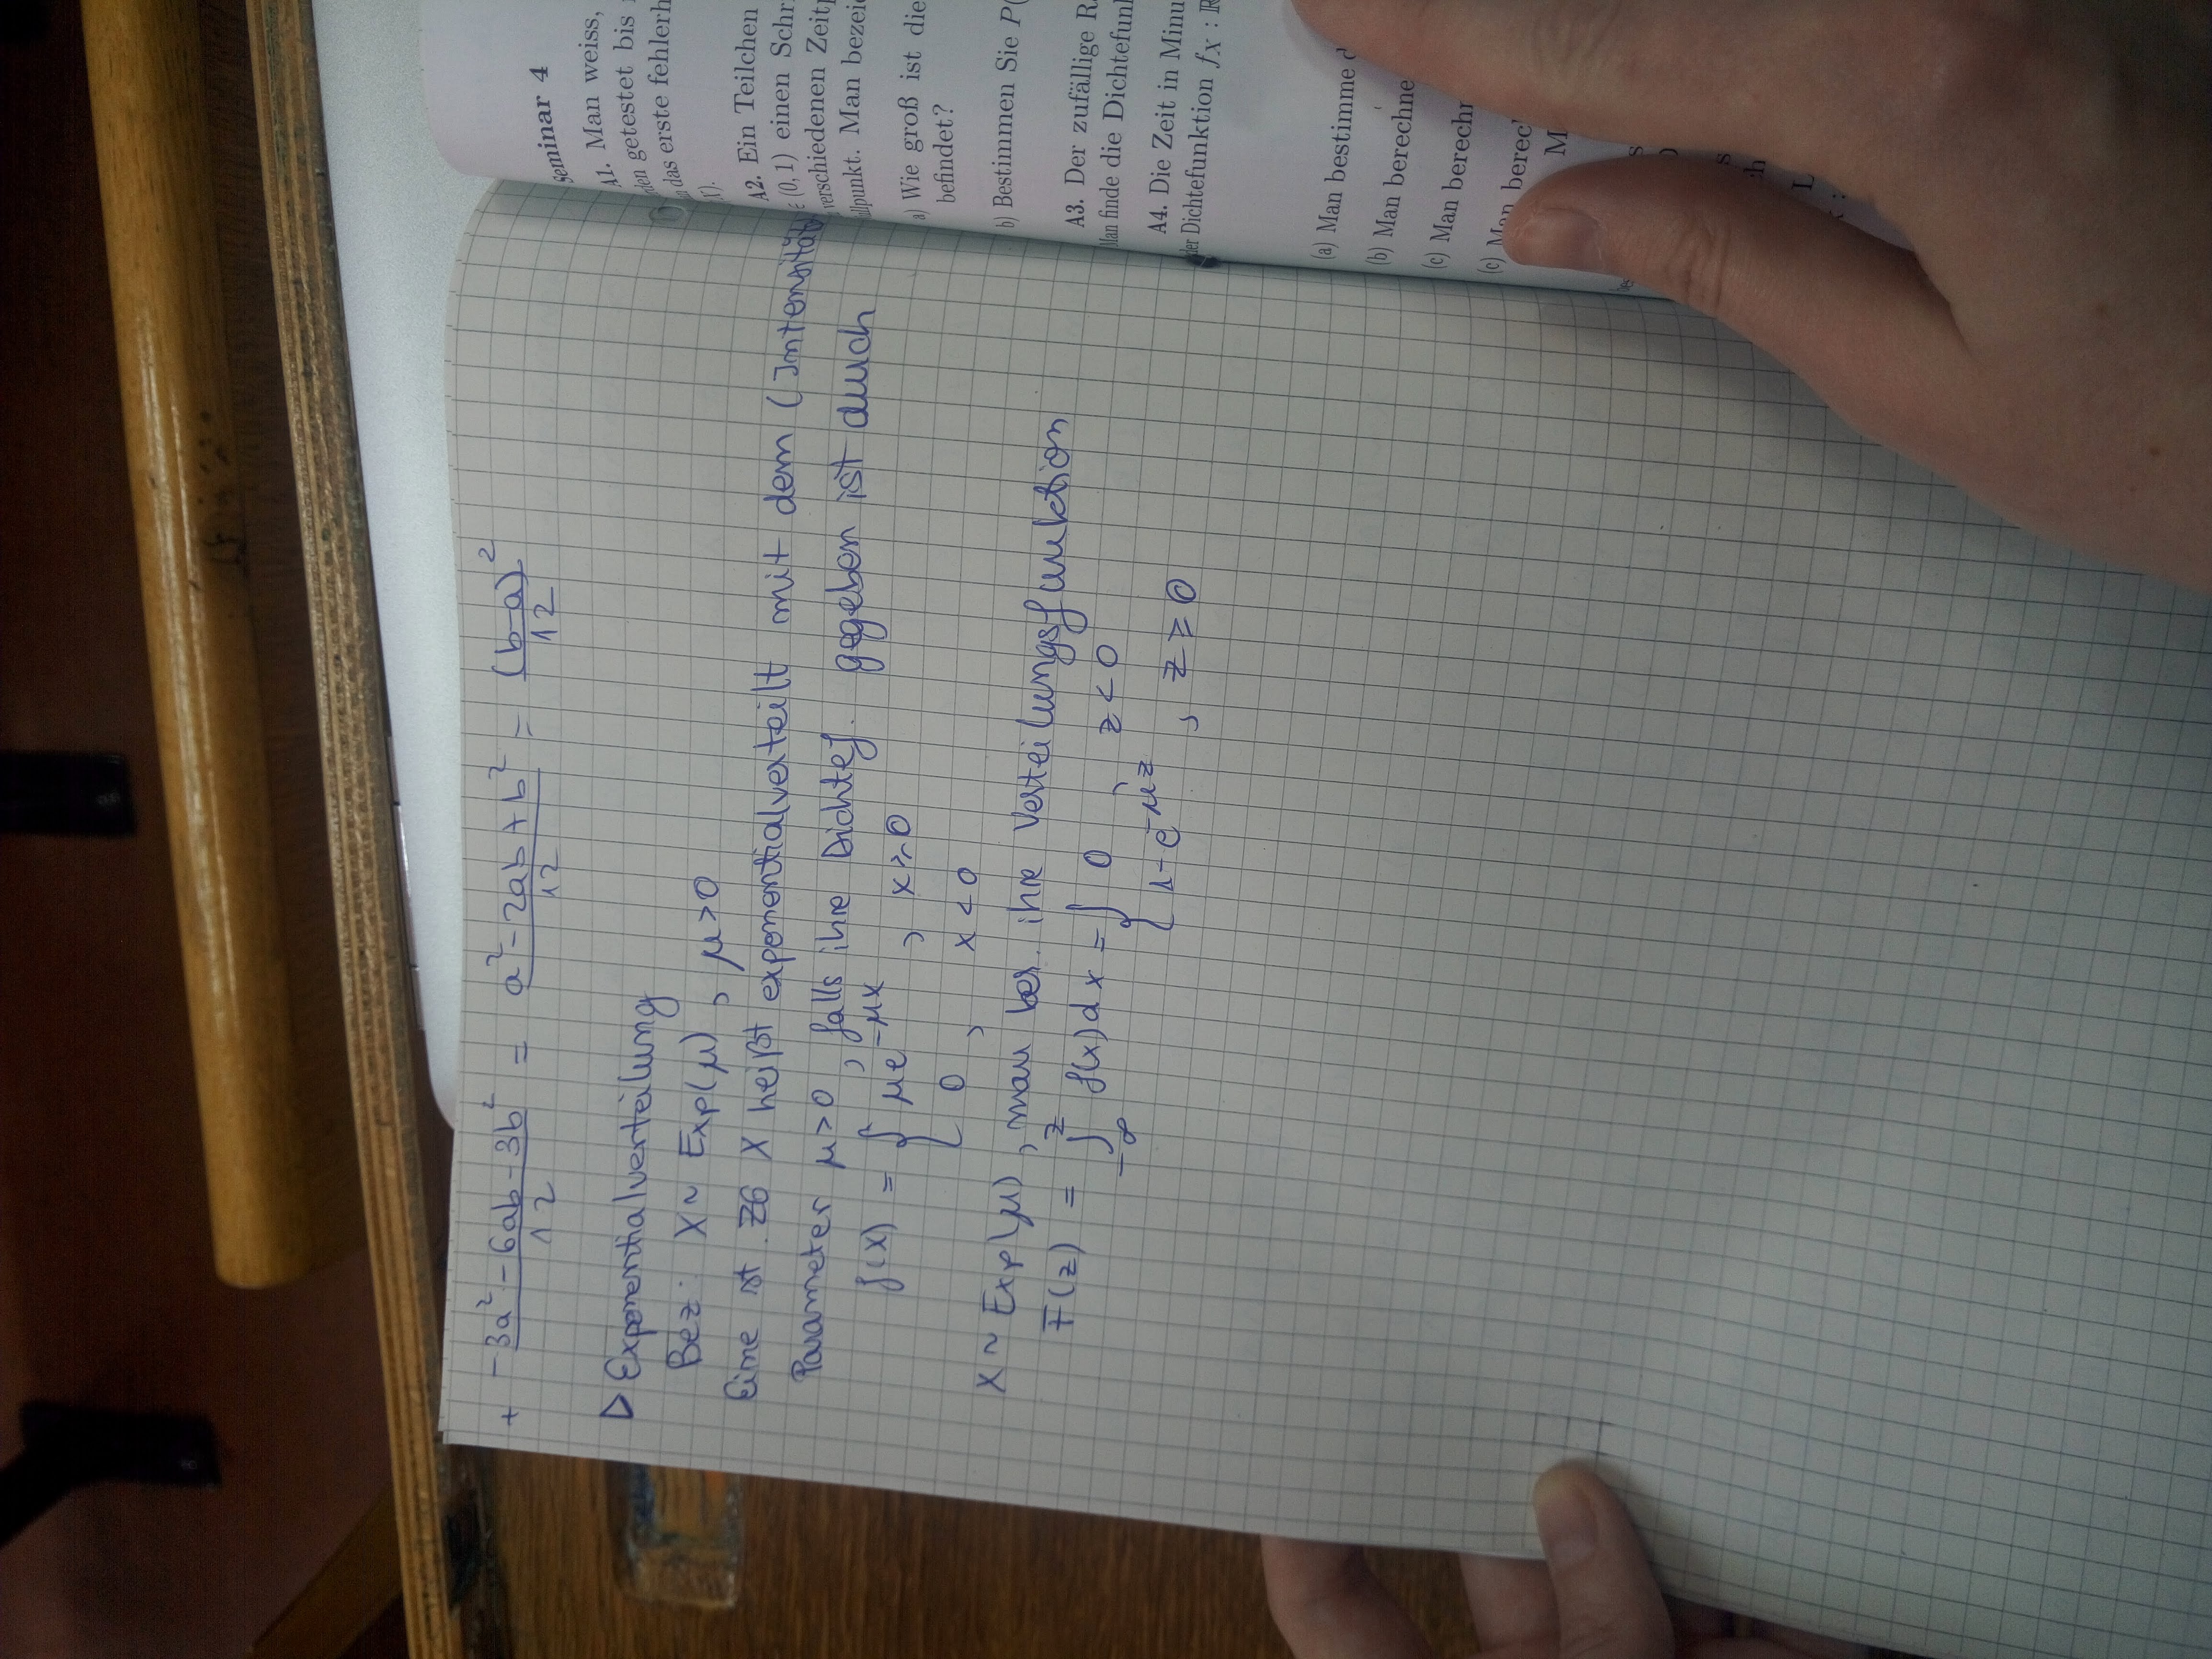 + -3a² - 6ab - 3b² / 12 = a² - 2ab + b² / 12 = (b-a)² / 12
▷ Exponentialverteilung
Bez: X ~ Exp(μ), μ > 0
Eine st. ZG X heißt exponentialverteilt mit dem (Intensität
Parameter μ > 0, falls ihre Dichtef. gegeben ist durch
f(x) = { μe^-μx , x ≥ 0
0 , x < 0
X ~ Exp(μ), man ber. ihre Verteilungsfunktion
F(z) = ∫_-∞^z f(x)dx = { 0 , z < 0
1 - e^-μz , z ≥ 0
Seminar 4
A1. Man weiss,
getestet bis
das erste fehlerh
X).
A2. Ein Teilchen
∈ (0, 1) einen Schr
verschiedenen Zeitp
llpunkt. Man bezei
a) Wie groß ist die
befindet?
b) Bestimmen Sie P(
A3. Der zufällige R
Man finde die Dichtefunk
A4. Die Zeit in Minu
der Dichtefunktion f_X : ℝ
(a) Man bestimme d
(b) Man berechne
(c) Man berechn
(c) Man berech
M